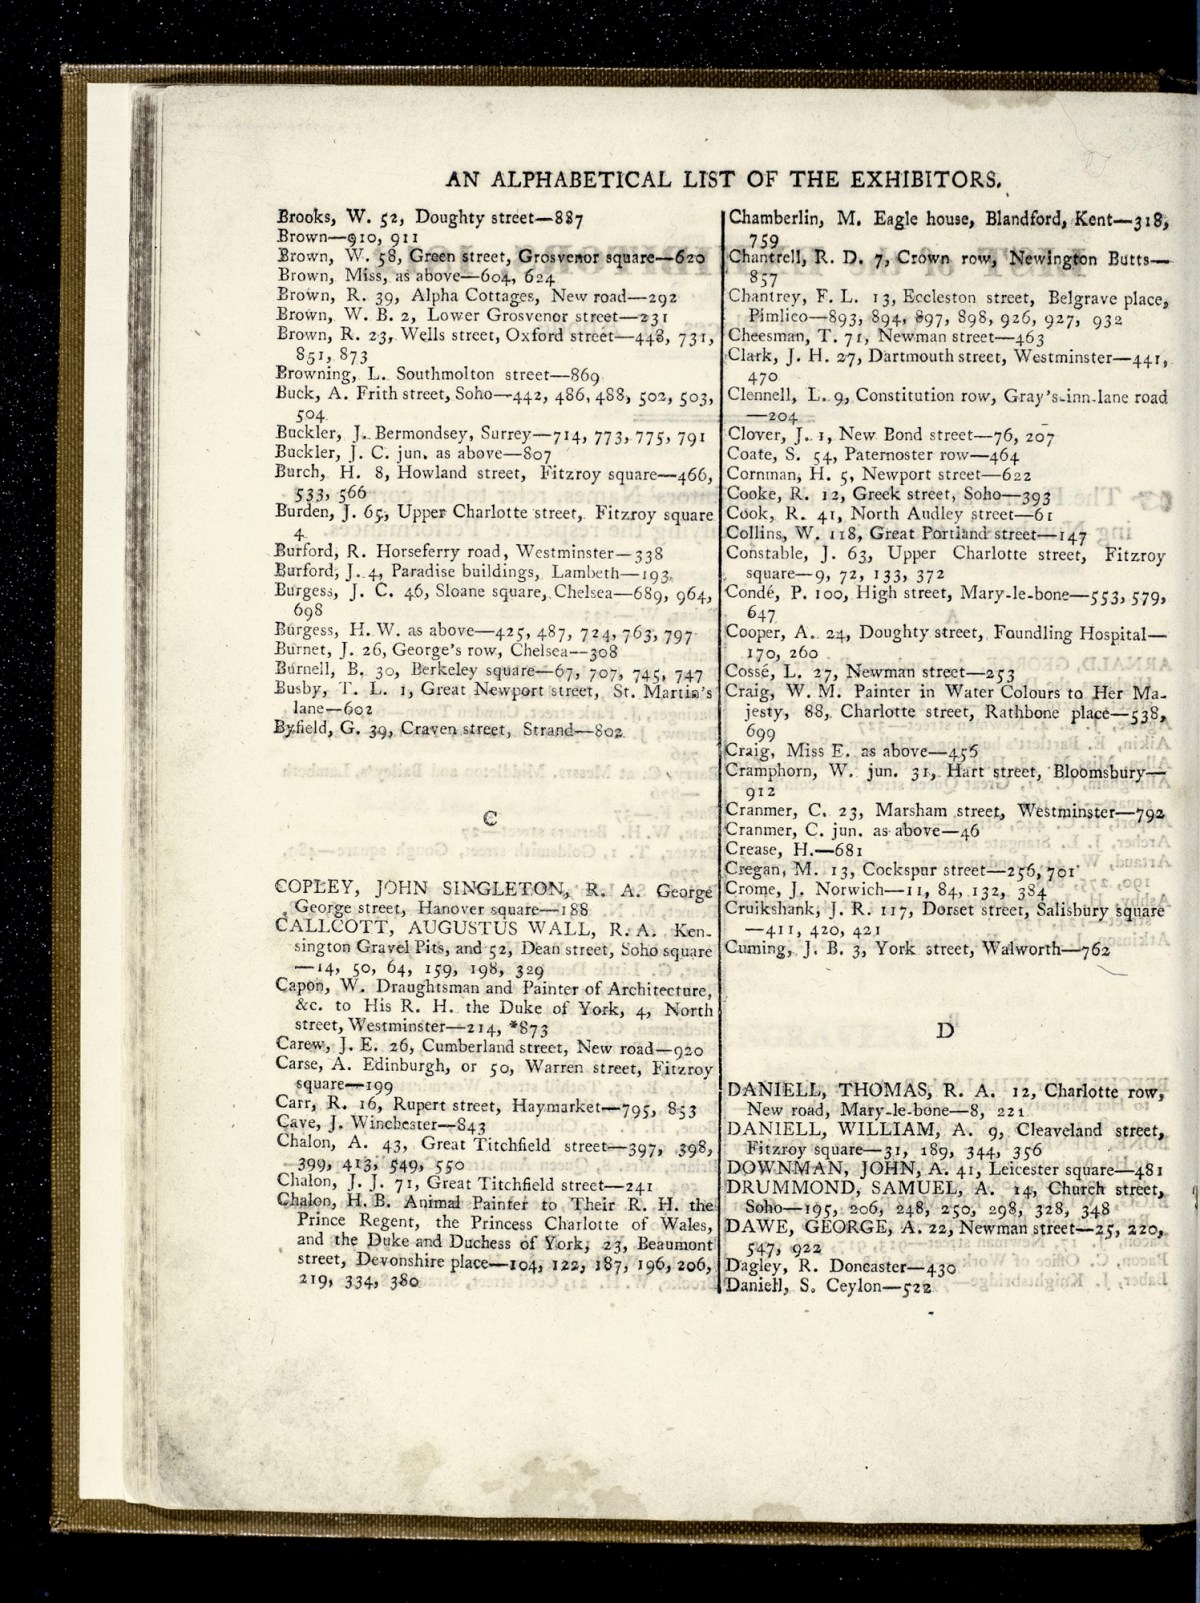 AN ALPHABETICAL LIST OF THE EXHIBITORS.
Brooks, W. 52, Doughty street—887
Brown—910, 911
Brown, W. 58, Green street, Grosvenor square—620
Brown, Miss, as above—604, 624
Brown, R. 39, Alpha Cottages, New road—292
Brown, W. B. 2, Lower Grosvenor street—231
Brown, R. 23, Wells street, Oxford street—448, 731,
851, 873
Browning, L. Southmolton street—869
Buck, A. Frith street, Soho—442, 486, 488, 502, 503,
504
Buckler, J. Bermondsey, Surrey—714, 773, 775, 791
Buckler, J. C. jun. as above—807
Burch, H. 8, Howland street, Fitzroy square—466,
533, 566
Burden, J. 65, Upper Charlotte street, Fitzroy square
4
Burford, R. Horseferry road, Westminster—338
Burford, J. 4, Paradise buildings, Lambeth—193
Burgess, J. C. 46, Sloane square, Chelsea—689, 964,
698
Burgess, H. W. as above—425, 487, 724, 763, 797
Burnet, J. 26, George's row, Chelsea—308
Burnell, B. 30, Berkeley square—67, 707, 745, 747
Busby, T. L. 1, Great Newport street, St. Martin's
lane—602
Byfield, G. 39, Craven street, Strand—802
C
COPLEY, JOHN SINGLETON, R. A. George
George street, Hanover square—188
CALLCOTT, AUGUSTUS WALL, R. A. Ken-
sington Gravel Pits, and 52, Dean street, Soho square
—14, 50, 64, 159, 198, 329
Capon, W. Draughtsman and Painter of Architecture,
&c. to His R. H. the Duke of York, 4, North
street, Westminster—214, *873
Carew, J. E. 26, Cumberland street, New road—920
Carse, A. Edinburgh, or 50, Warren street, Fitzroy
square—199
Carr, R. 16, Rupert street, Haymarket—795, 853
Cave, J. Winchester—843
Chalon, A. 43, Great Titchfield street—397, 398,
399, 413, 549, 550
Chalon, J. J. 71, Great Titchfield street—241
Chalon, H. B. Animal Painter to Their R. H. the
Prince Regent, the Princess Charlotte of Wales,
and the Duke and Duchess of York, 23, Beaumont
street, Devonshire place—104, 122, 187, 196, 206,
219, 334, 380
Chamberlin, M. Eagle house, Blandford, Kent—318,
759
Chantrell, R. D. 7, Crown row, Newington Butts—
857
Chantrey, F. L. 13, Eccleston street, Belgrave place,
Pimlico—893, 894, 897, 898, 926, 927, 932
Cheesman, T. 71, Newman street—463
Clark, J. H. 27, Dartmouth street, Westminster—441,
470
Clennell, L. 9, Constitution row, Gray's-inn-lane road
—204
Clover, J. 1, New Bond street—76, 207
Coate, S. 54, Paternoster row—464
Cornman, H. 5, Newport street—622
Cooke, R. 12, Greek street, Soho—393
Cook, R. 41, North Audley street—61
Collins, W. 118, Great Portland street—147
Constable, J. 63, Upper Charlotte street, Fitzroy
square—9, 72, 133, 372
Condé, P. 100, High street, Mary-le-bone—553, 579,
647
Cooper, A. 24, Doughty street, Foundling Hospital—
170, 260
Cossé, L. 27, Newman street—253
Craig, W. M. Painter in Water Colours to Her Ma-
jesty, 88, Charlotte street, Rathbone place—538,
699
Craig, Miss E. as above—456
Cramphorn, W. jun. 31, Hart street, Bloomsbury—
912
Cranmer, C. 23, Marsham street, Westminster—792
Cranmer, C. jun. as above—46
Crease, H.—681
Cregan, M. 13, Cockspur street—256, 701
Crome, J. Norwich—11, 84, 132, 384
Cruikshank, J. R. 117, Dorset street, Salisbury square
—411, 420, 421
Cuming, J. B. 3, York street, Walworth—762
D
DANIELL, THOMAS, R. A. 12, Charlotte row,
New road, Mary-le-bone—8, 221
DANIELL, WILLIAM, A. 9, Cleaveland street,
Fitzroy square—31, 189, 344, 356
DOWNMAN, JOHN, A. 41, Leicester square—481
DRUMMOND, SAMUEL, A. 14, Church street,
Soho—195, 206, 248, 250, 298, 328, 348
DAWE, GEORGE, A. 22, Newman street—25, 220,
547, 922
Dagley, R. Doncaster—430
Daniell, S. Ceylon—522